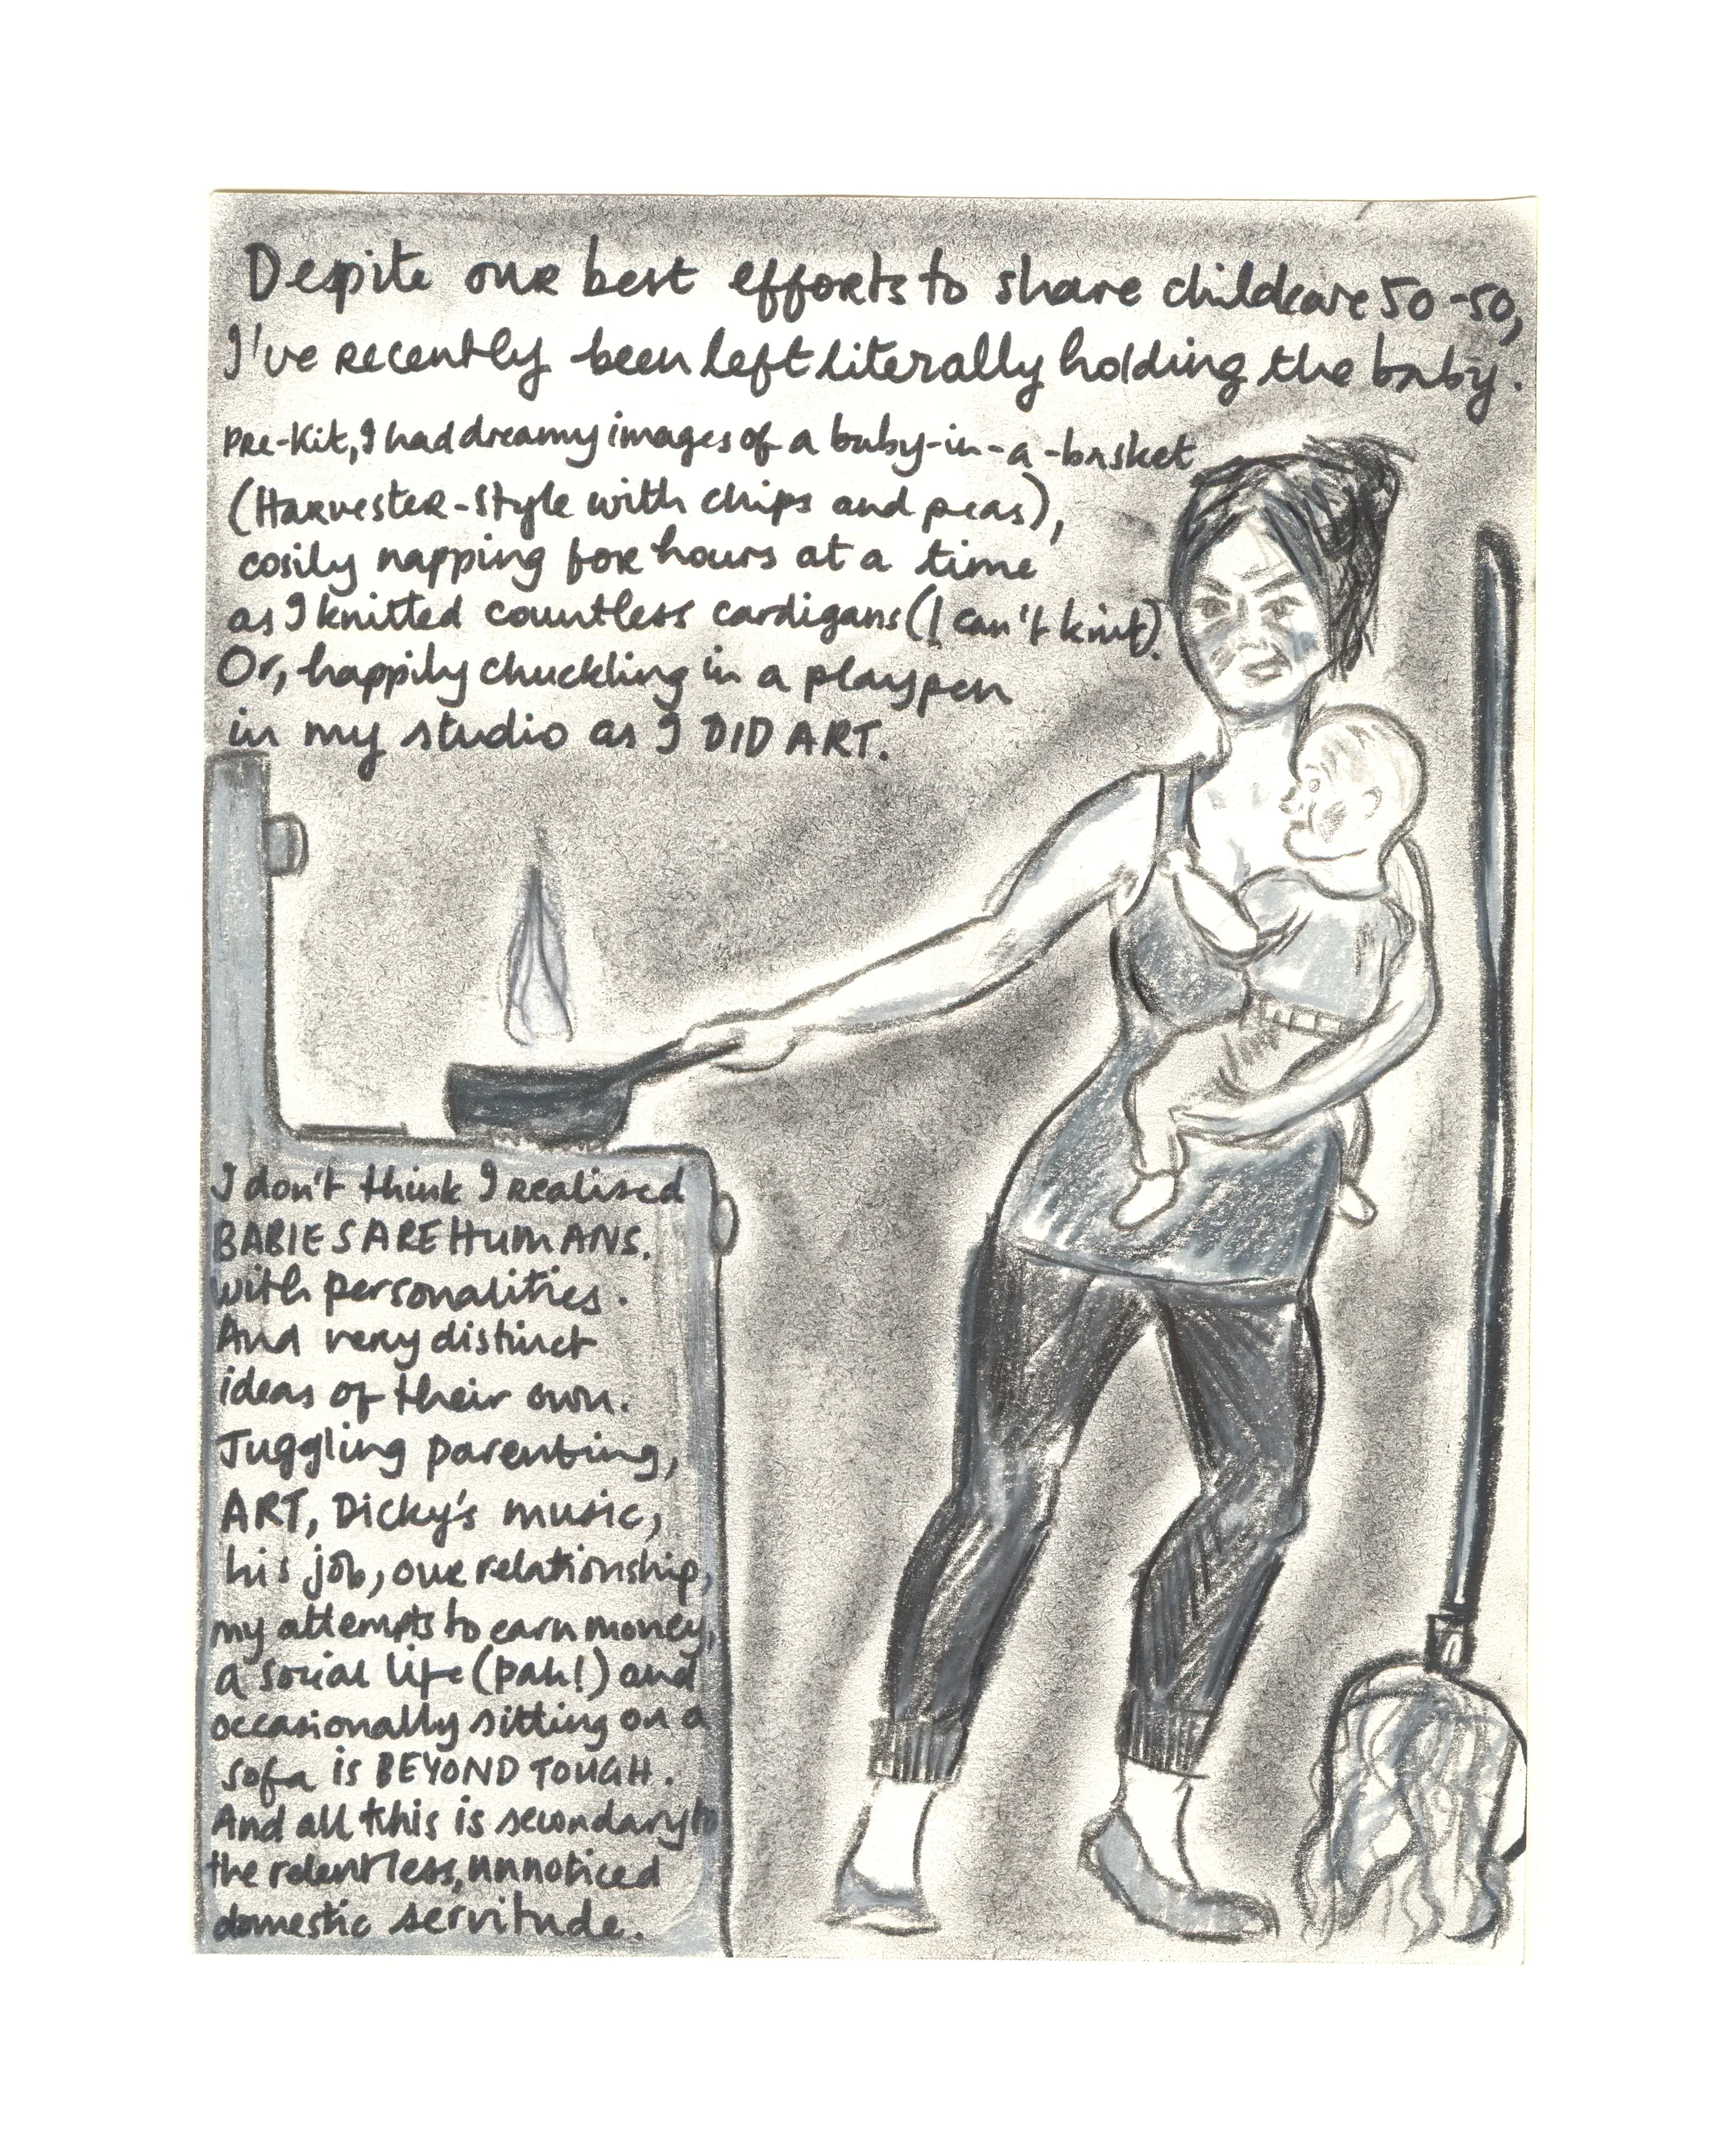 Despite our best efforts to share childcare 50-50,
I've recently been left literally holding the baby.
Pre-Kit, I had dreamy images of a baby-in-a-basket
(Harvester-style with chips and peas),
cosily napping for hours at a time
as I knitted countless cardigans (I can't knit).
Or, happily chuckling in a playpen
in my studio as I DID ART.
I don't think I realised
BABIES ARE HUMANS.
with personalities.
And very distinct
ideas of their own.
Juggling parenting,
ART, Dicky's music,
his job, our relationship,
my attempts to earn money,
a social life (pah!) and
occasionally sitting on a
sofa is BEYOND TOUGH.
And all this is secondary to
the relentless, unnoticed
domestic servitude.